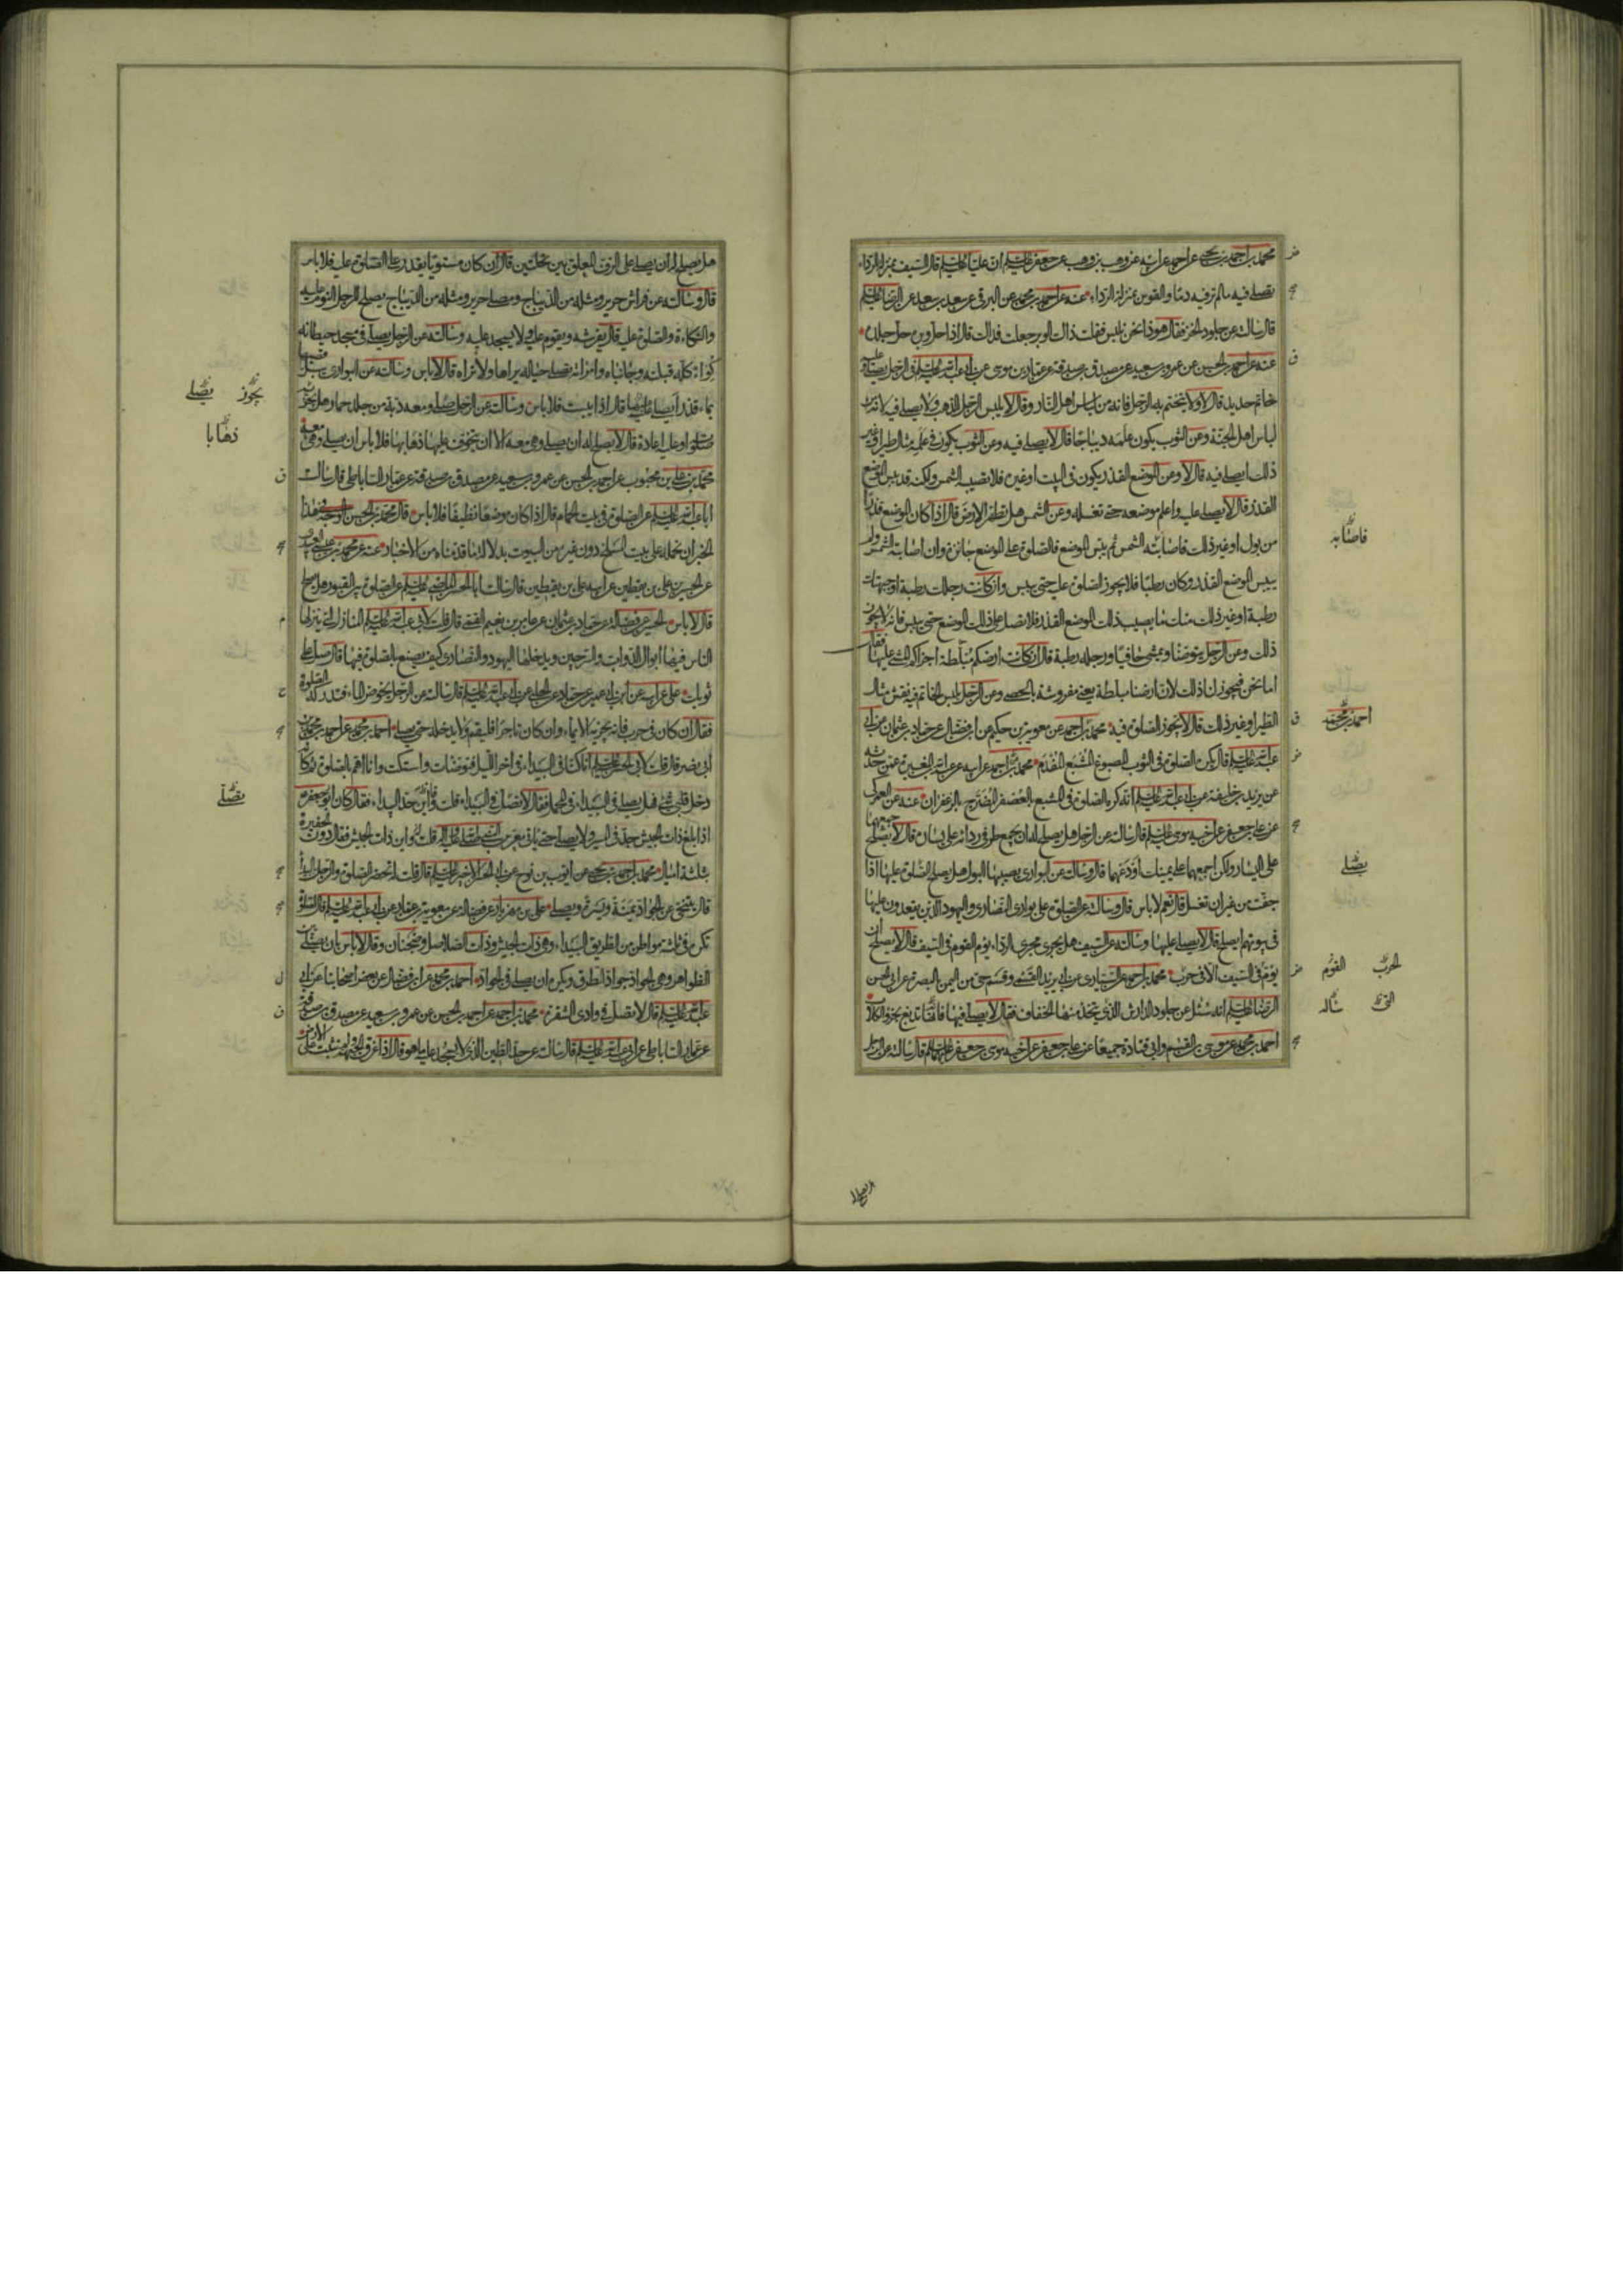 محمد بن احمد بن يحيى عن احمد عن ابيه عن وهب بن وهب عن جعفر عليه السلام ان عليا عليه السلام قال السيف بمنزلة الرداء
تصلى فيه ما لم تر فيه دما والقوس بمنزلة الرداء عنه عن احمد بن محمد عن البرقى عن سعد بن سعد عن الرضا عليه السلام
قال سالته عن جلود الخز فقال هوذا نحن نلبس فقلت ذاك الوبر جعلت فداك قال اذا حل وبره حل جلده
عنه عن احمد بن الحسن عن عمرو بن سعيد عن مصدق بن صدقة عن عمار بن موسى عن ابى عبد الله عليه السلام فى الرجل يصلى وعليه
خاتم حديد قال لا ولا يتختم به الرجل فانه من لباس اهل النار وقال لا يلبس الرجل الذهب ولا يصلى فيه لانه من
لباس اهل الجنة وعن الثوب يكون علمه ديباجا قال لا يصلى فيه وعن الثوب يكون فى علمه مثال طير او غير
ذلك ايصلى فيه قال لا وعن الموضع القذر يكون فى البيت او غيره فلا تصيبه الشمس ولكنه قد يبس الموضع
القذر قال لا يصلى عليه واعلم موضعه حتى تغسله وعن الشمس هل تطهر الارض قال اذا كان الموضع قذرا
من بول او غير ذلك فاصابته الشمس ثم يبس الموضع فالصلوة على الموضع جائزة وان اصابته الشمس ولم
ييبس الموضع القذر وكان رطبا فلا يجوز الصلوة عليه حتى ييبس وان كانت رجلك رطبة او جبهتك
رطبة او غير ذلك منك ما يصيب ذلك الموضع القذر فلا تصل على ذلك الموضع حتى ييبس فانه لا يجوز
ذلك وعن الرجل يتوضا ويمشى حافيا ورجله رطبة قال ان كانت ارضكم مبلطة اجزاكم المشى عليها فقال
اما نحن فيجوز لنا ذلك لان ارضنا مبلطة يعنى مفروشة بالحصى وعن الرجل يلبس الخاتم فيه نقش مثال
الطير او غير ذلك قال لا تجوز الصلوة فيه محمد بن احمد عن معوية بن حكيم عن ابن فضال عن حماد بن عثمان عن ابى
عبد الله عليه السلام قال يكره الصلوة فى الثوب المصبوغ المشبع المفدم محمد بن احمد عن ابيه عن عبد الله بن المغيرة عمن حدثه
عن يزيد بن خليفة عن ابى عبد الله عليه السلام انه كره الصلوة فى المشبع بالعصفر المضرج بالزعفران عنه عن العمركى
عن على بن جعفر عن اخيه موسى عليه السلام قال سالته عن الرجل هل يصلح له ان يجمع طرفى ردائه على يساره قال لا يصلح جمعهما
على اليسار ولكن اجمعهما على يمينك او دعهما قال وسالته عن البوارى يصيبها البول هل يصلح الصلوة عليها اذا
جفت من غير ان تغسل قال نعم لا باس قال وسالته عن الصلوة على بوارى النصارى واليهود الذين يقعدون عليها
فى بيوتهم ايصلح قال لا يصلى عليها وسالته عن السيف هل يجرى مجرى الرداء يؤم القوم فى السيف قال لا يصلح ان
يؤم فى السيف الا فى حرب محمد بن احمد عن السيارى عن ابى يزيد القسمى وقسم حى من اليمن بالبصرة عن ابى الحسن
الرضا عليه السلام انه سئل عن جلود الدارش الذى يتخذ منها الخفاف فقال لا يصلى فيها فانها تدبغ بخرء الكلاب
احمد بن محمد عن موسى بن القسم وابى قتادة جميعا عن على بن جعفر عن اخيه موسى بن جعفر عليهما السلام قال سالته عن الرجل
فاصابه
احمد بن محمد
يصلى
الحرب القوم
سالة
هل يصلح
هل يصلح له ان يصلى على الرف المعلق بين نخلتين قال ان كان مستويا يقدر على الصلوة عليه فلا باس
قال وسالته عن فراش حرير ومثله من الديباج ومصلى حرير ومثله من الديباج يصلح للرجل النوم عليه
والتكاءة والصلوة عليه قال يفرشه ويقوم عليه ولا يسجد عليه وسالته عن الرجل يصلى فى مسجد حيطانه
كواء كله قبلته وجانباه وامراته تصلى حياله يراها ولا تراه قال لا باس وسالته عن البوارى يبل قصبها
بماء قذر ايصلى عليها قال اذا يبست فلا باس وسالته عن الرجل صلى ومعه دبة من جلد حمار وهل تجزيه
صلوته او عليه اعادة قال لا يصلح له ان يصلى وهى معه الا ان يتخوف عليها ذهابها فلا باس ان يصلى وهى معه
محمد بن على بن محبوب عن احمد بن الحسن عن عمرو بن سعيد عن مصدق بن صدقة عن عمار الساباطى قال سالت
ابا عبد الله عليه السلام عن الصلوة فى بيت الحمام قال اذا كان موضعا نظيفا فلا باس قال محمد بن الحسن الوجه فى هذا
الخبر ان نحمله على بيت المسلخ دون غيره من البيوت بدلالة ما قدمناه من الاخبار عنه عن محمد بن عيسى العبيدى
عن الحسين بن على بن يقطين عن ابيه على بن يقطين قال سالت ابا الحسن الماضى عليه السلام عن الصلوة بين القبور هل تصلح
قال لا باس الحسين عن فضالة عن حماد بن عثمان عن عامر بن نعيم القمى قال قلت لابى عبد الله عليه السلام المنازل التى ينزلها
الناس فيها ابوال الدواب والسرجين ويدخلها اليهود والنصارى كيف يصنع بالصلوة فيها قال صل على
ثوبك على عن ابيه عن ابن ابى عمير عن حماد عن الحلبى عن ابى عبد الله عليه السلام قال سالته عن الرجل يخوض الماء فتدركه الصلوة
فقال ان كان فى حرب فانه يجزيه الايماء وان كان تاجرا فليقم ولا يدخله حتى يصلى احمد بن محمد عن احمد بن محمد بن
ابى نصر قال قلت لابى الحسن عليه السلام انا كنا فى البيداء فى اخر الليل فتوضات واستكت وانا اهم بالصلوة ثم كانه
دخل قلبى شىء فهل يصلى فى البيداء فى المحمل فقال لا تصل فى البيداء قلت واين حد البيداء فقال كان ابو جعفر
اذا بلغ ذات الجيش جد فى السير ولا يصلى حتى ياتى معرس النبى صلى الله عليه واله قلت له واين ذات الجيش فقال دون الحفيرة
بثلثة اميال محمد بن احمد بن يحيى عن ايوب بن نوح عن ابى الحسن الاخير عليه السلام قال قلت له تحضر الصلوة والرجل بالبيداء
قال يتنحى عن الجواد يمنة ويسرة ويصلى على بن مهزيار عن فضالة عن معوية بن عمار عن ابى عبد الله عليه السلام قال الصلوة
تكره فى ثلثة مواطن من الطريق البيداء وهى ذات الجيش وذات الصلاصل وضجنان وقال لا باس بان يصلى بين
الظواهر وهى الجواد جواد الطرق ويكره ان يصلى فى الجواد احمد بن محمد عن ابن فضال عن بعض اصحابنا عن ابى
عبد الله عليه السلام قال لا تصل فى وادى الشقرة محمد بن احمد عن احمد بن الحسن عن عمرو بن سعيد عن مصدق بن صدقة
عن عمار الساباطى عن ابى عبد الله عليه السلام قال سالته عن حد الطين الذى لا يسجد عليه ما هو قال اذا غرق الجبهة ولم تثبت على الارض
يجوز يصلى
ذهابا
يصلى